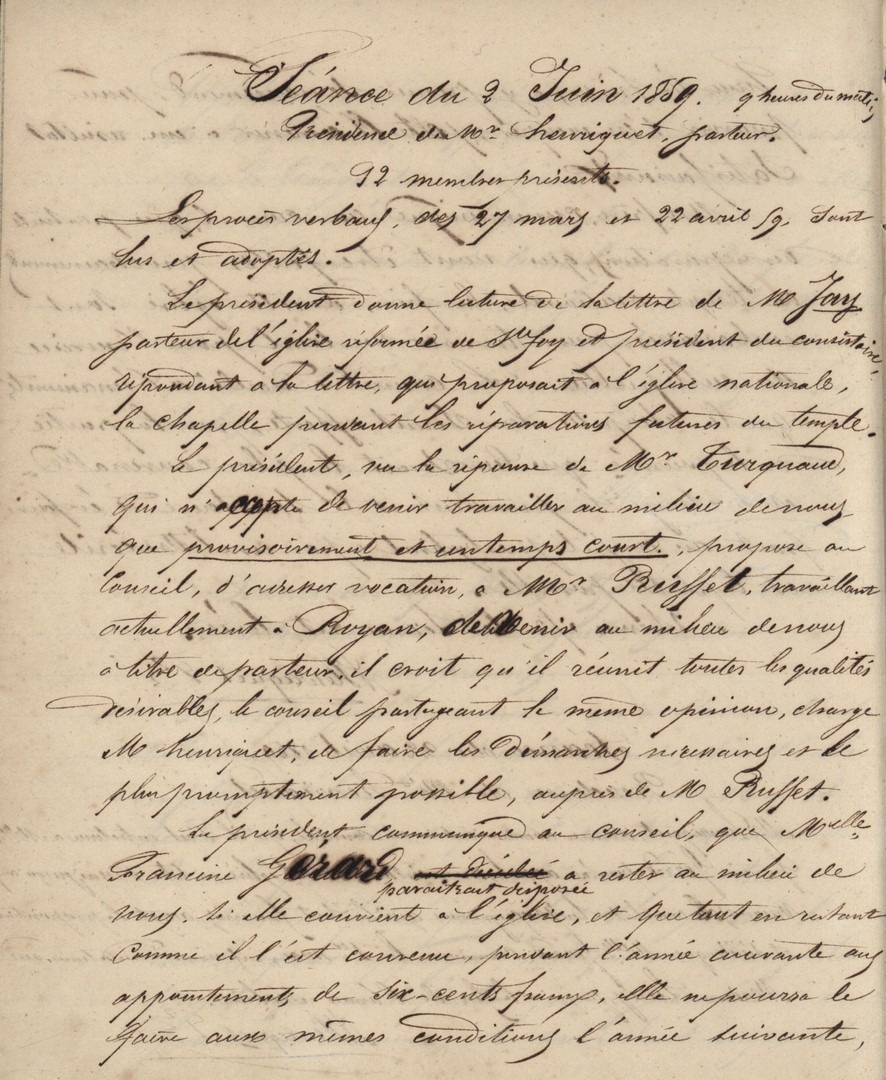 Séance du 2 Juin 1859. 9 heures du matin
Présidence de Mr henriquet, pasteur.
12 membres présents.
Les procès verbaux, des 27 mars et 22 avril 59, sont
lus et adoptés.
Le président donne lecture de la lettre de M Jay
pasteur de l'église réformée de Ste foy et président du consistoire,
répondant à la lettre, qui proposait à l'église nationale,
la chapelle pendant les réparations futures du temple.
Le président, vu la réponse de Mr Turquand,
qui n'accepte de venir travailler au milieu de nous
que provisoirement et un temps court, propose au
Conseil, d'adresser vocation, à Mr Russet, travaillant
actuellement à Royan, de venir au milieu de nous
à titre de pasteur, il croit qu'il réunit toutes les qualités
désirables, le conseil partageant la même opinion, charge
M henriquet, de faire les démarches nécessaires et le
plus promptement possible, auprès de M Russet.
Le président communique au conseil, que Melle
Francine Gérard est décidée a rester au milieu de
paraitrait disposée
nous, si elle convient à l'église, et que tout en restant
Comme il l'est convenu, pendant l'année courante aux
appointements de six-cents francs, elle ne pourra le
faire aux mêmes conditions l'année suivante,